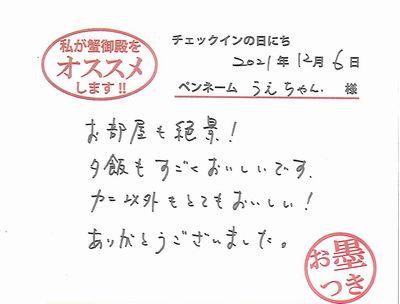 私が蟹御殿を
オススメ
します!!
チェックインの日にち
2021年12月6日
ペンネーム うえちゃん 様
お部屋も絶景!
夕飯もすごくおいしいです.
カニ以外もとてもおいしい!
ありがとうございました。
お墨
つき